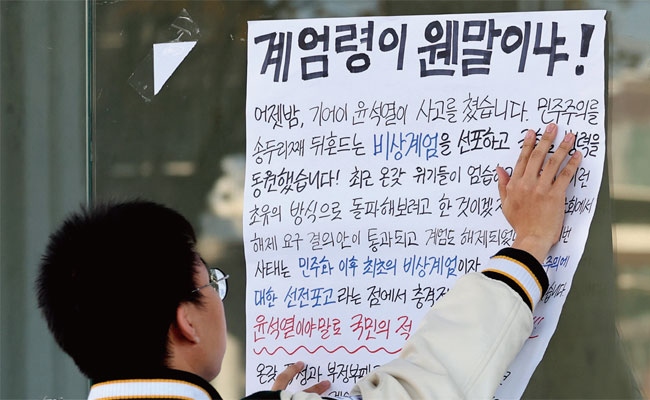 계엄령이 웬말이냐!
어젯밤, 기어이 윤석열이 사고를 쳤습니다. 민주주의를
송두리째 뒤흔드는 비상계엄을 선포하고
동원했습니다! 최근 온갖 위기들이 엄습하
초유의 방식으로 돌파해보려고 한 것이겠
해제 요구 결의안이 통과되고 계엄도 해제되었
사태는 민주화 이후 최초의 비상계엄이자
대한 선전포고라는 점에서 충격적
윤석열이야말로 국민의 적
온갖 부정과 부정부패